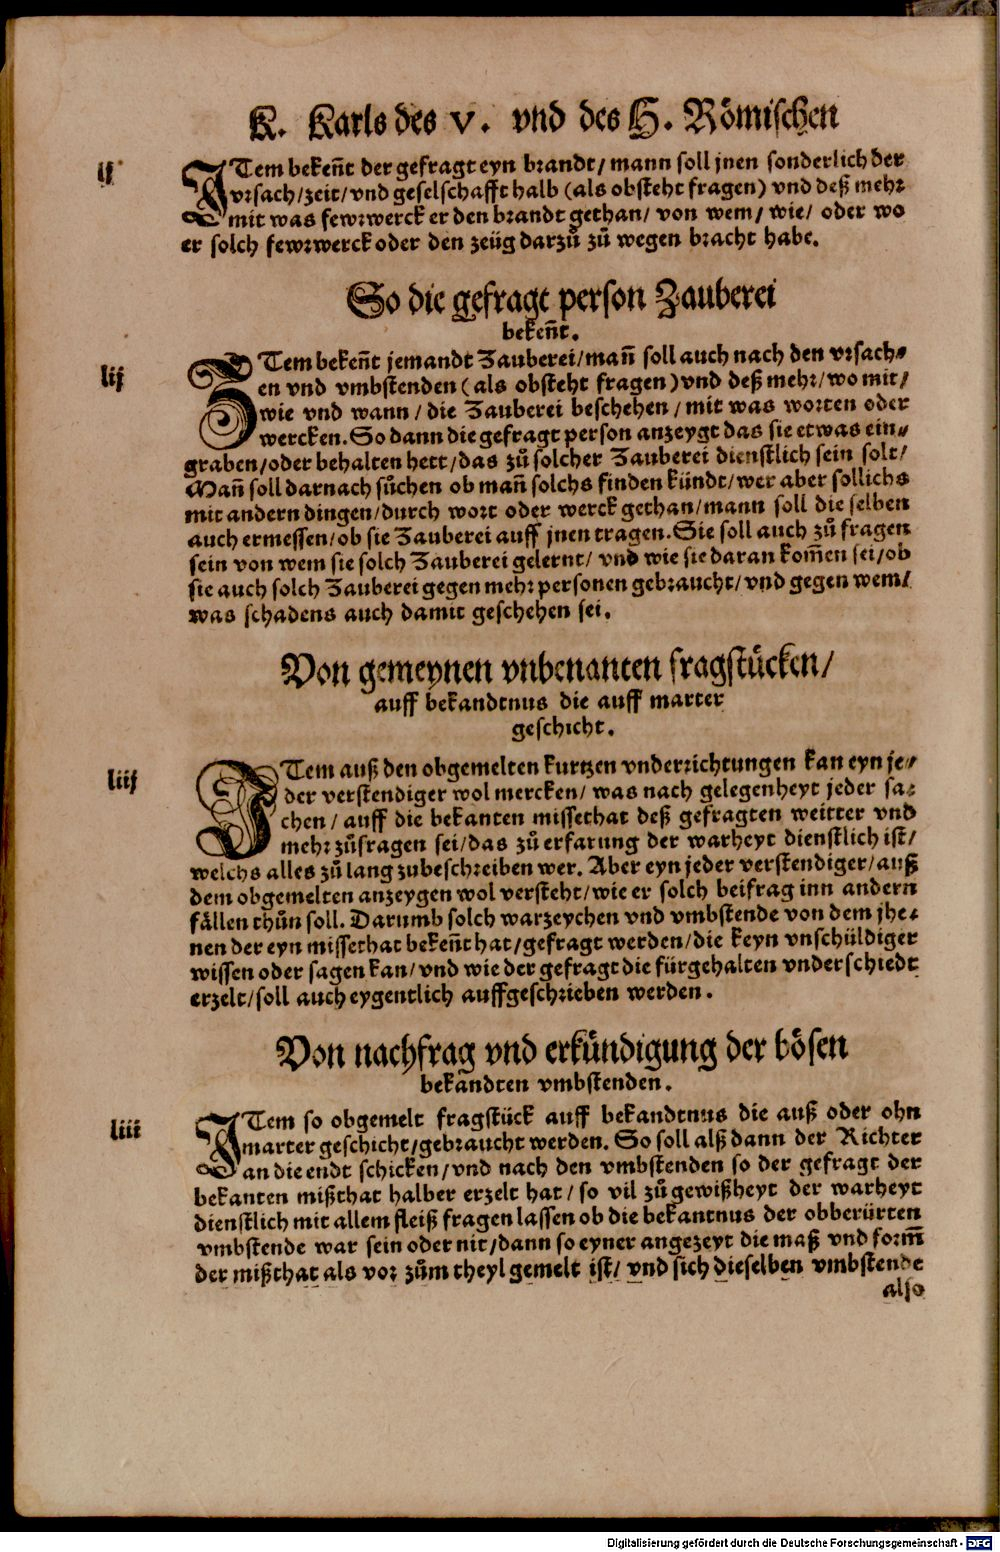 K. Karls des V. vnd des H. Römischen
lj
ITem bekeñt der gefragt eyn brandt/ mann soll jnen sonderlich der
vrsach/zeit/vnd geselschafft halb (als obsteht fragen) vnd deß mehr
mit was fewrwerck er den brandt gethan/ von wem/ wie/ oder wo
er solch fewrwerck oder den zeüg darzů zů wegen bracht habe.
So die gefragt person Zauberei
bekeñt.
lij
ITem bekeñt jemandt Zauberei/mañ soll auch nach den vrsach⸗
en vnd vmbstenden (als obsteht fragen) vnd deß mehr/wo mit/
wie vnd wann/ die Zauberei beschehen/ mit was worten oder
wercken. So dann die gefragt person anzeygt das sie etwas ein⸗
graben/oder behalten hett/das zů solcher Zauberei dienstlich sein solt/
Mañ soll darnach sůchen ob mañ solchs finden kündt/wer aber sollichs
mit andern dingen/durch wort oder werck gethan/mann soll die selben
auch ermessen/ob sie Zauberei auff jnen tragen. Sie soll auch zů fragen
sein von wem sie solch Zauberei gelernt/ vnd wie sie daran kom̃en sei/ob
sie auch solch Zauberei gegen mehr personen gebraucht/vnd gegen wem/
was schadens auch damit geschehen sei.
Von gemeynen vnbenanten fragstücken/
auff bekandtnus die auff marter
geschicht.
liij
ITem auß den obgemelten kurtzen vnderrichtungen kan eyn je⸗
der verstendiger wol mercken/ was nach gelegenheyt jeder sa⸗
chen/ auff die bekanten missethat deß gefragten weitter vnd
mehr zůfragen sei/das zů erfarung der warheyt dienstlich ist/
welchs alles zů lang zubeschreiben wer. Aber eyn jeder verstendiger/auß
dem obgemelten anzeygen wol versteht/wie er solch beifrag inn andern
fällen thůn soll. Darumb solch warzeychen vnd vmbstende von dem jhe⸗
nen der eyn missethat bekeñt hat/gefragt werden/die keyn vnschüldiger
wissen oder sagen kan/vnd wie der gefragt die fürgehalten vnderschiedt
erzelt/soll auch eygentlich auffgeschrieben werden.
Von nachfrag vnd erkündigung der bösen
bekandten vmbstenden.
liiii
ITem so obgemelt fragstück auff bekandtnus die auß oder ohn
marter geschicht/gebraucht werden. So soll alß dann der Richter
an die endt schicken/vnd nach den vmbstenden so der gefragt der
bekanten mißthat halber erzelt hat/ so vil zů gewißheyt der warheyt
dienstlich mit allem fleiß fragen lassen ob die bekantnus der obberürten
vmbstende war sein oder nit/dann so eyner angezeyt die maß vnd form̃
der mißthat als vor zům theyl gemelt ist/ vnd sich dieselben vmbstende
also
Digitalisierung gefördert durch die Deutsche Forschungsgemeinschaft - DFG